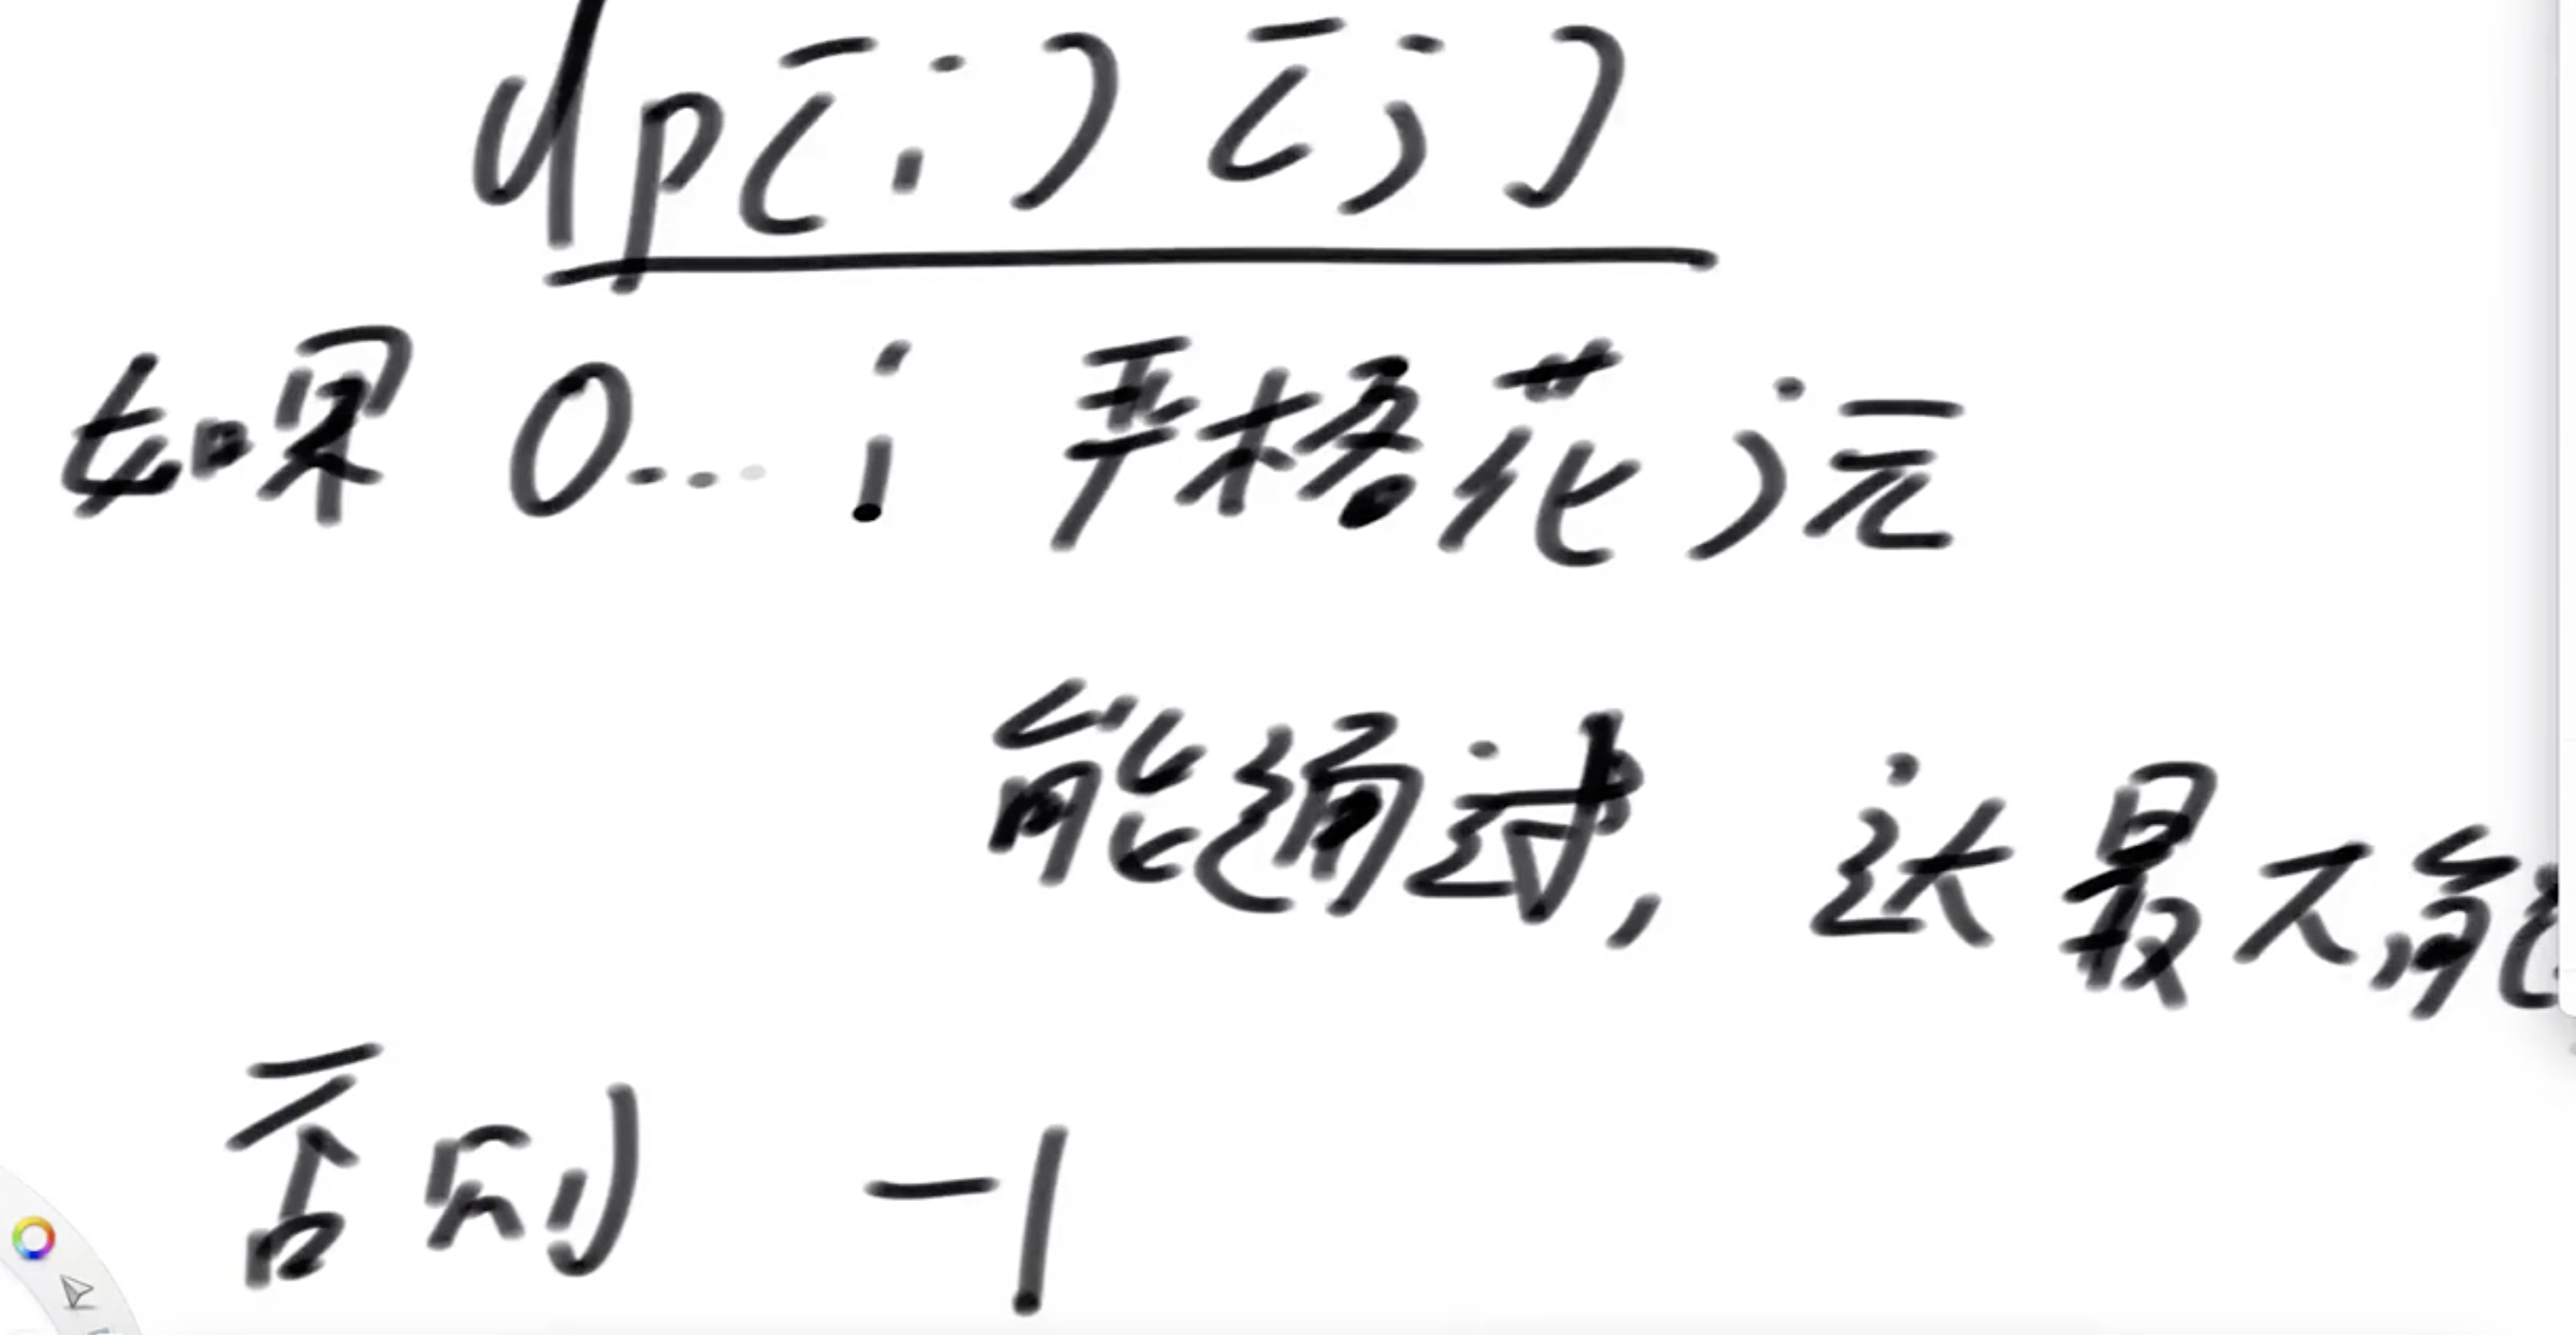 dp[i][j]
如果 0... i 严格花 j 元
能通过, 达最大能
否则 -1